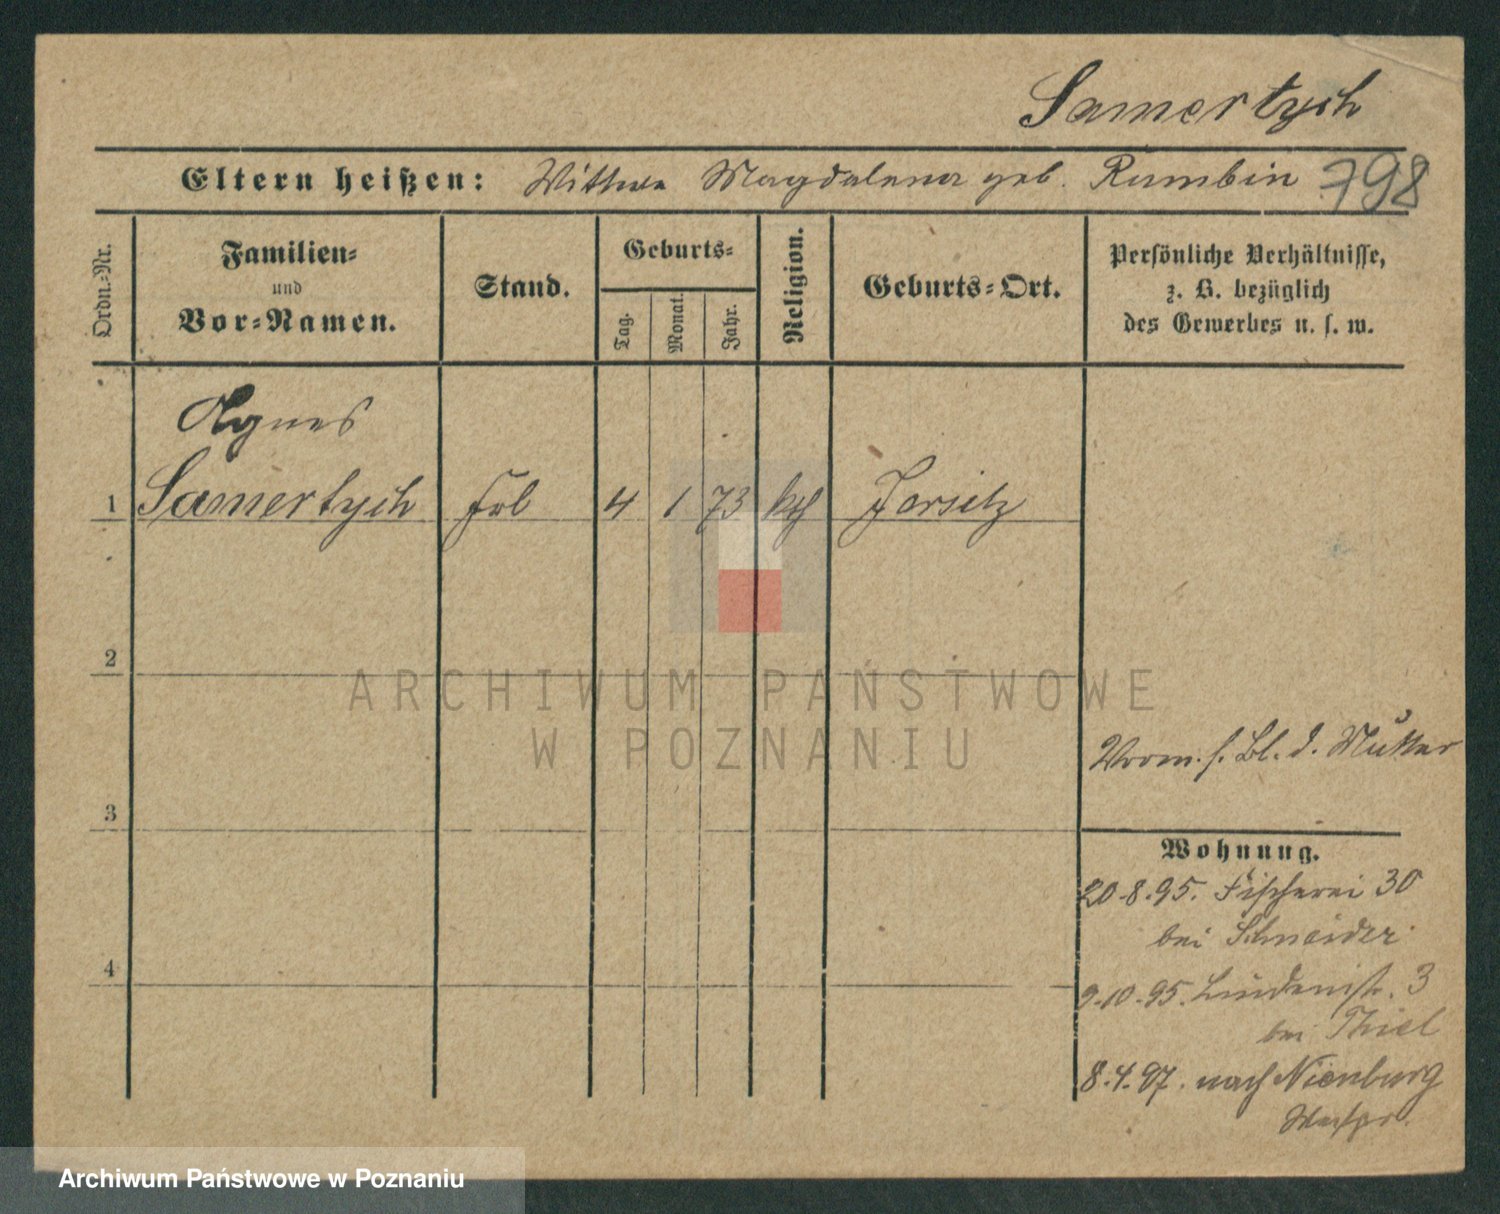 Samertych
Eltern heißen: Wittwe Magdalena geb. Rumbin 798
Ordn.-Nr.
Familien-
und
Vor-Namen.
Stand.
Geburts-
Tag. Monat. Jahr.
Religion.
Geburts-Ort.
Persönliche Verhältnisse,
z. B. bezüglich
des Gewerbes u. s. w.
Agnes
1 Samertych Frl 4 1 73 kth Jersitz
2
ARCHIWUM PAŃSTWOWE
W POZNANIU
Vorm. s. Bl. d. Mutter
3
Wohnung.
20.8.95. Fischerei 30
bei Schneider
4
9.10.95. Lindenstr. 3
bei Thiel
8.4.97. nach Nienburg
Westpr.
Archiwum Państwowe w Poznaniu